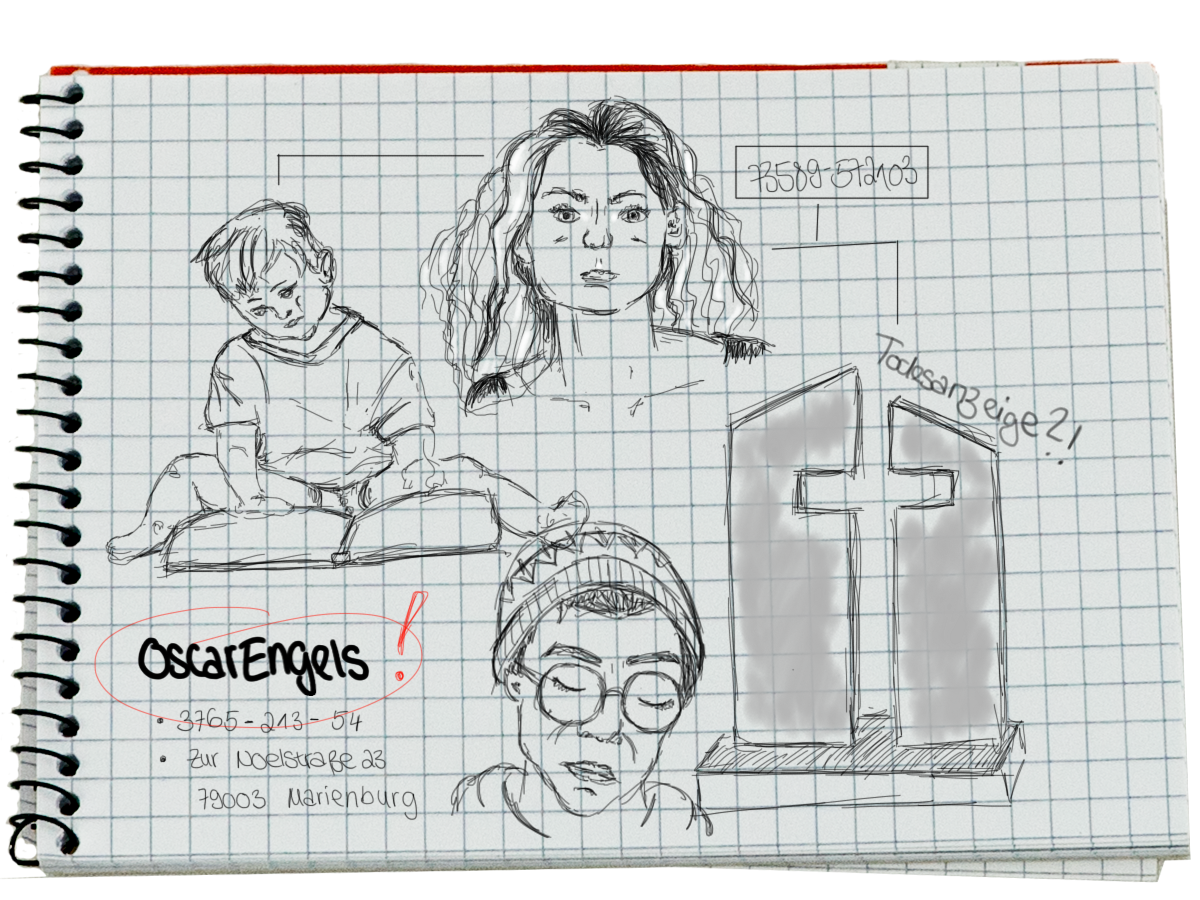 73589-572103
Todesanzeige?!
Oscar Engels !
• 3765-213-54
• Zur Noelstraße 23
79003 Marienburg